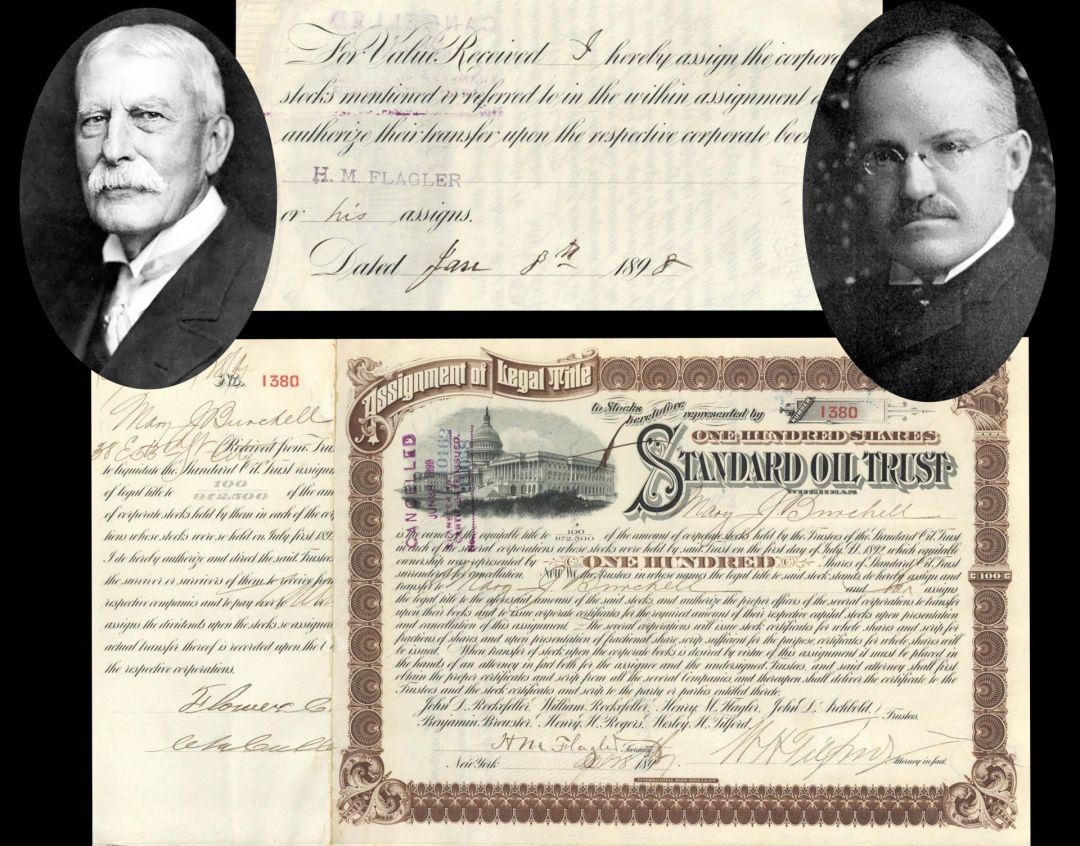 CANCELLED
For Value Received I hereby assign the corpora
stocks mentioned or referred to in the within assignment a
authorize their transfer upon the respective corporate boo
H. M. FLAGLER
or his assigns.
Dated Jan 8th 1898
No. 1380
Mary J Burchell
Received from Trus
to liquidate the Standard Oil Trust assign
of legal title to 100/972.500 of the am
of corporate stocks held by them in each of the cor
tions whose stocks were so held on July first 1892
I do hereby authorize and direct the said Trustees
the survivor or survivors of them to receive from
respective companies and to pay over to
assigns the dividends upon the stocks so assigned
actual transfer thereof is recorded upon the
the respective corporations.
Assignment of Legal Title
to Stocks heretofore represented by
NUMBER 1380
ONE HUNDRED SHARES
STANDARD OIL TRUST
WHEREAS
Mary J Burchell
CANCELLED
is the owner of the equitable title to 100/972.500 of the amount of corporate stocks held by the Trustees of the Standard Oil Trust
in each of the several corporations whose stocks were held by said Trust on the first day of July A.D. 1892, which equitable
ownership was represented by ONE HUNDRED Shares of Standard Oil Trust
surrendered for cancellation. Now We the Trustees in whose names the legal title to said stock stands, do hereby assign and
transfer to Mary J Burchell and her assigns
the legal title to the aforesaid amount of the said stocks, and authorize the proper officers of the several corporations to transfer
upon their books and to issue corporate certificates for the required amount of their respective capital stocks upon presentation
and cancellation of this assignment. The several corporations will issue stock certificates for whole shares and scrip for
fractions of shares and upon presentation of fractional share scrip sufficient for the purpose certificates for whole shares will
be issued. When transfer of stock upon the corporate books is desired by virtue of this assignment it must be placed in
the hands of an attorney in fact both for the assignee and the undersigned Trustees, and said attorney shall first
obtain the proper certificates and scrip from all the several Companies, and thereupon shall deliver the certificate to the
Trustees and the stock certificates and scrip to the party or parties entitled thereto.
John D. Rockefeller, William Rockefeller, Henry M. Flagler, John D. Archbold,
Benjamin Brewster, Henry H. Rogers, Wesley H. Tilford, Trustees.
H M Flagler Secretary
W H Tilford
New York 189 Attorney in fact.
100
INTERNATIONAL BANK NOTE CO. N.Y.